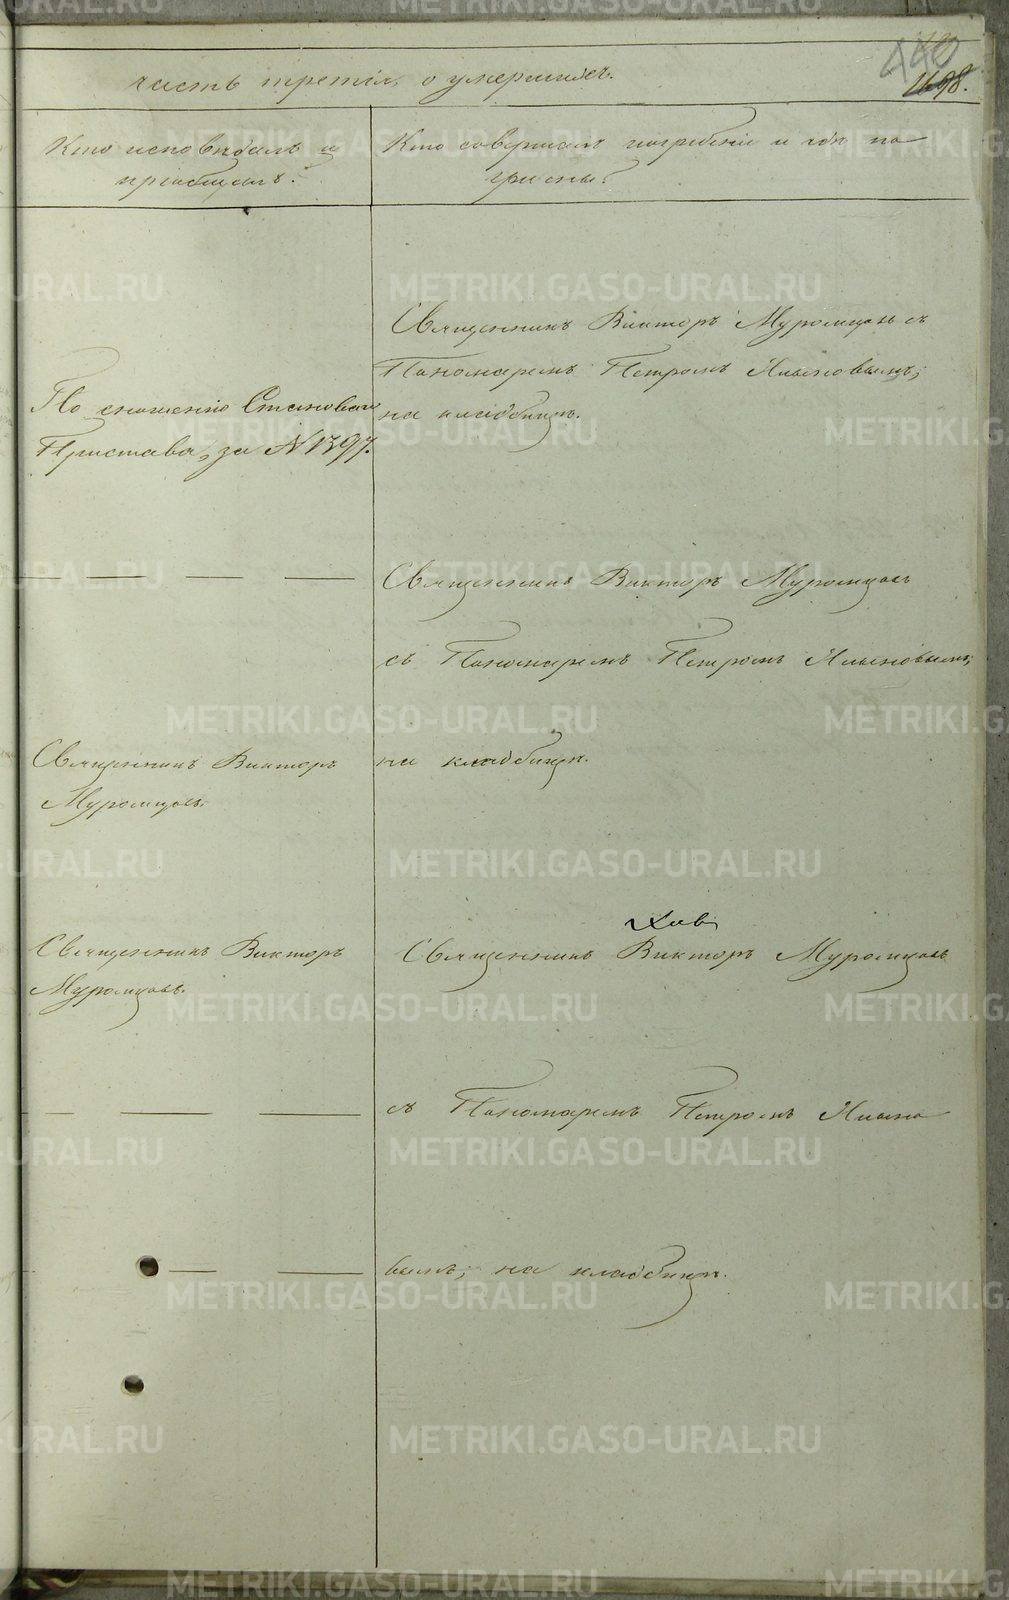 часть третія, о умершихъ.
440
1698.
Кто исповѣдалъ и
пріобщалъ.
Кто совершалъ погребеніе и гдѣ по
гребены?
Священникъ Викторъ Муромцовъ съ
Пономаремъ Петромъ Ильиновымъ;
на кладбищѣ.
По сношенію Становаго
Пристава, за № 1397.
Священникъ Викторъ Муромцовъ
съ Пономаремъ Петромъ Ильиновымъ,
на кладбищѣ.
Священникъ Викторъ
Муромцовъ.
Священникъ Викторъ
Муромцовъ.
Священникъ Викторъ Муромцовъ
съ Пономаремъ Петромъ Ильино
вымъ; на кладбищѣ.
METRIKI.GASO-URAL.RU